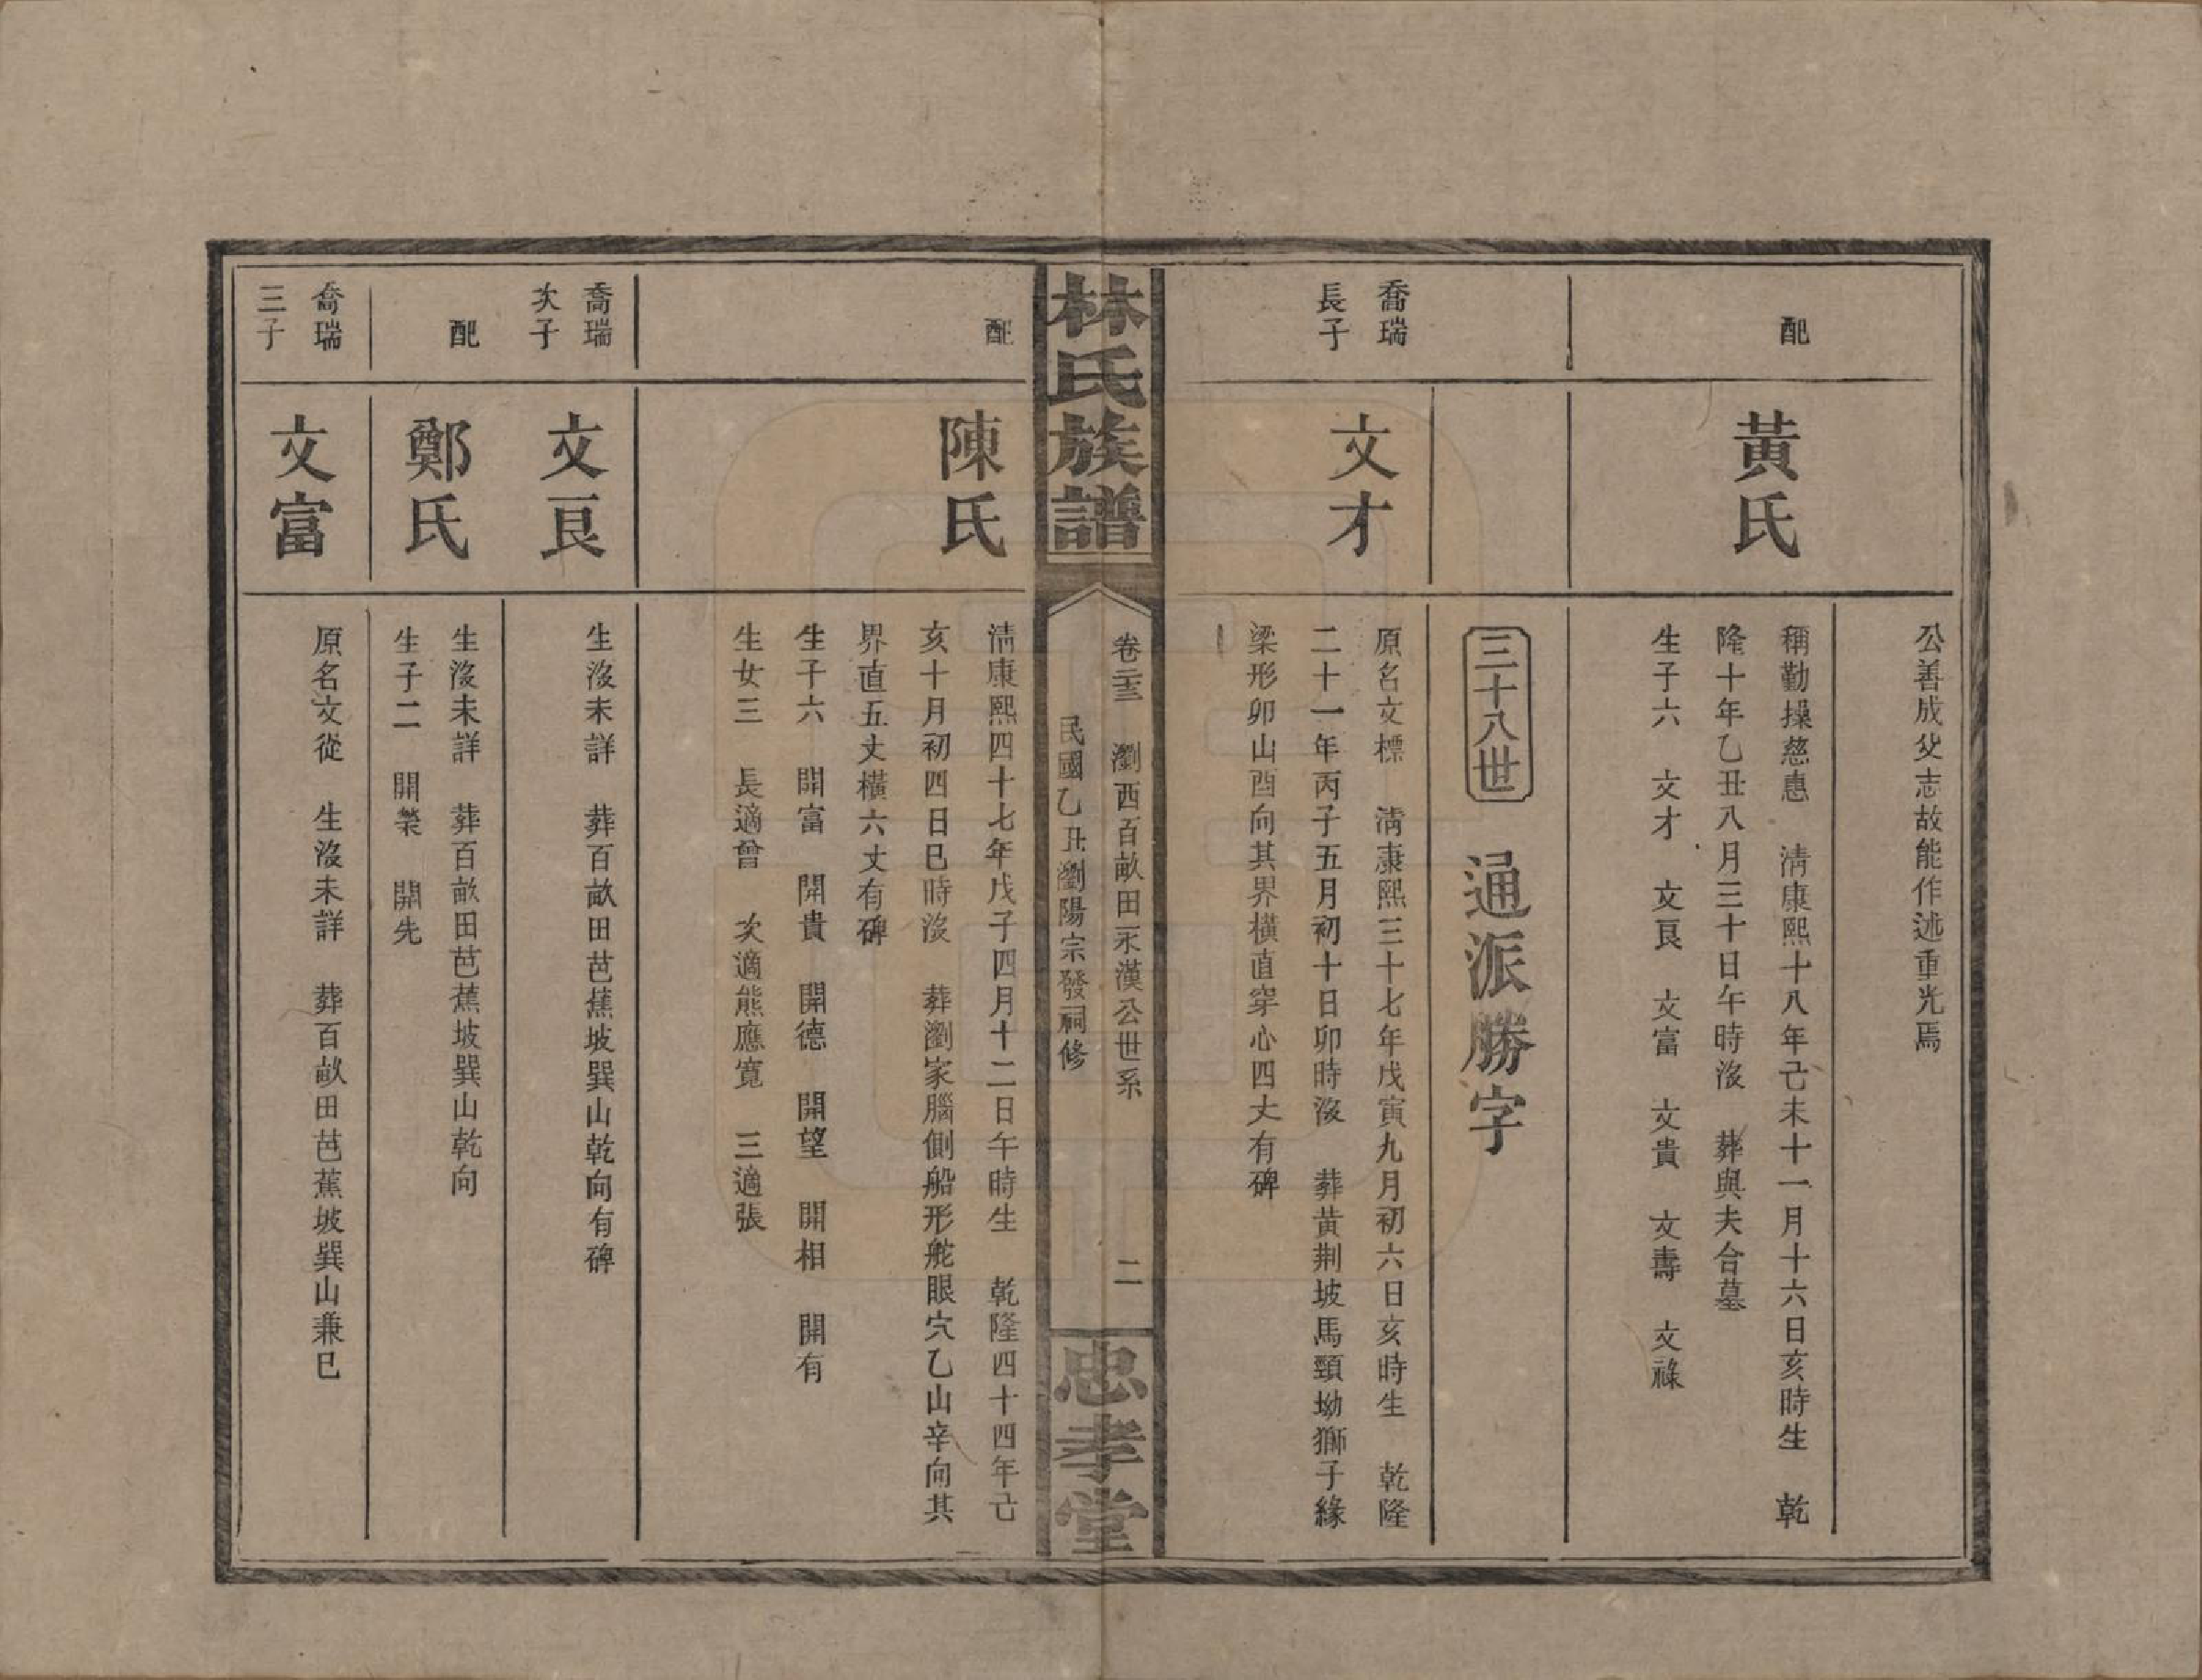 公善成父志故能作述重光焉
配
黃氏
稱勤操慈惠　清康熙十八年己未十一月十六日亥時生　乾
隆十年乙丑八月三十日午時沒　葬與夫合墓
生子六　文才　文良　文富　文貴　文壽　文祿
三十八世　通派勝字
喬瑞
長子
文才
原名文標　清康熙三十七年戊寅九月初六日亥時生　乾隆
二十一年丙子五月初十日卯時沒　葬黃荆坡馬頸坳獅子緣
梁形卯山酉向其界橫直穿心四丈有碑
林氏族譜
卷二十三　瀏西百畝田永漢公世系　二
民國乙丑瀏陽宗發祠修
忠孝堂
配
陳氏
清康熙四十七年戊子四月十二日午時生　乾隆四十四年己
亥十月初四日巳時沒　葬瀏家腦側船形舵眼穴乙山辛向其
界直五丈橫六丈有碑
生子六　開富　開貴　開德　開望　開相　開有
生女三　長適曾　次適熊應寬　三適張
喬瑞
次子
文良
生沒未詳　葬百畝田芭蕉坡巽山乾向有碑
配
鄭氏
生沒未詳　葬百畝田芭蕉坡巽山乾向
生子二　開榮　開先
喬瑞
三子
文富
原名文從　生沒未詳　葬百畝田芭蕉坡巽山兼巳